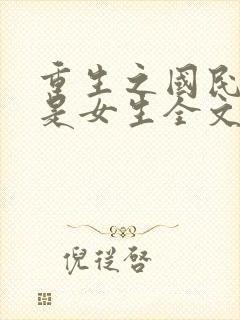 重生之國民
是女生全文
倪從啓